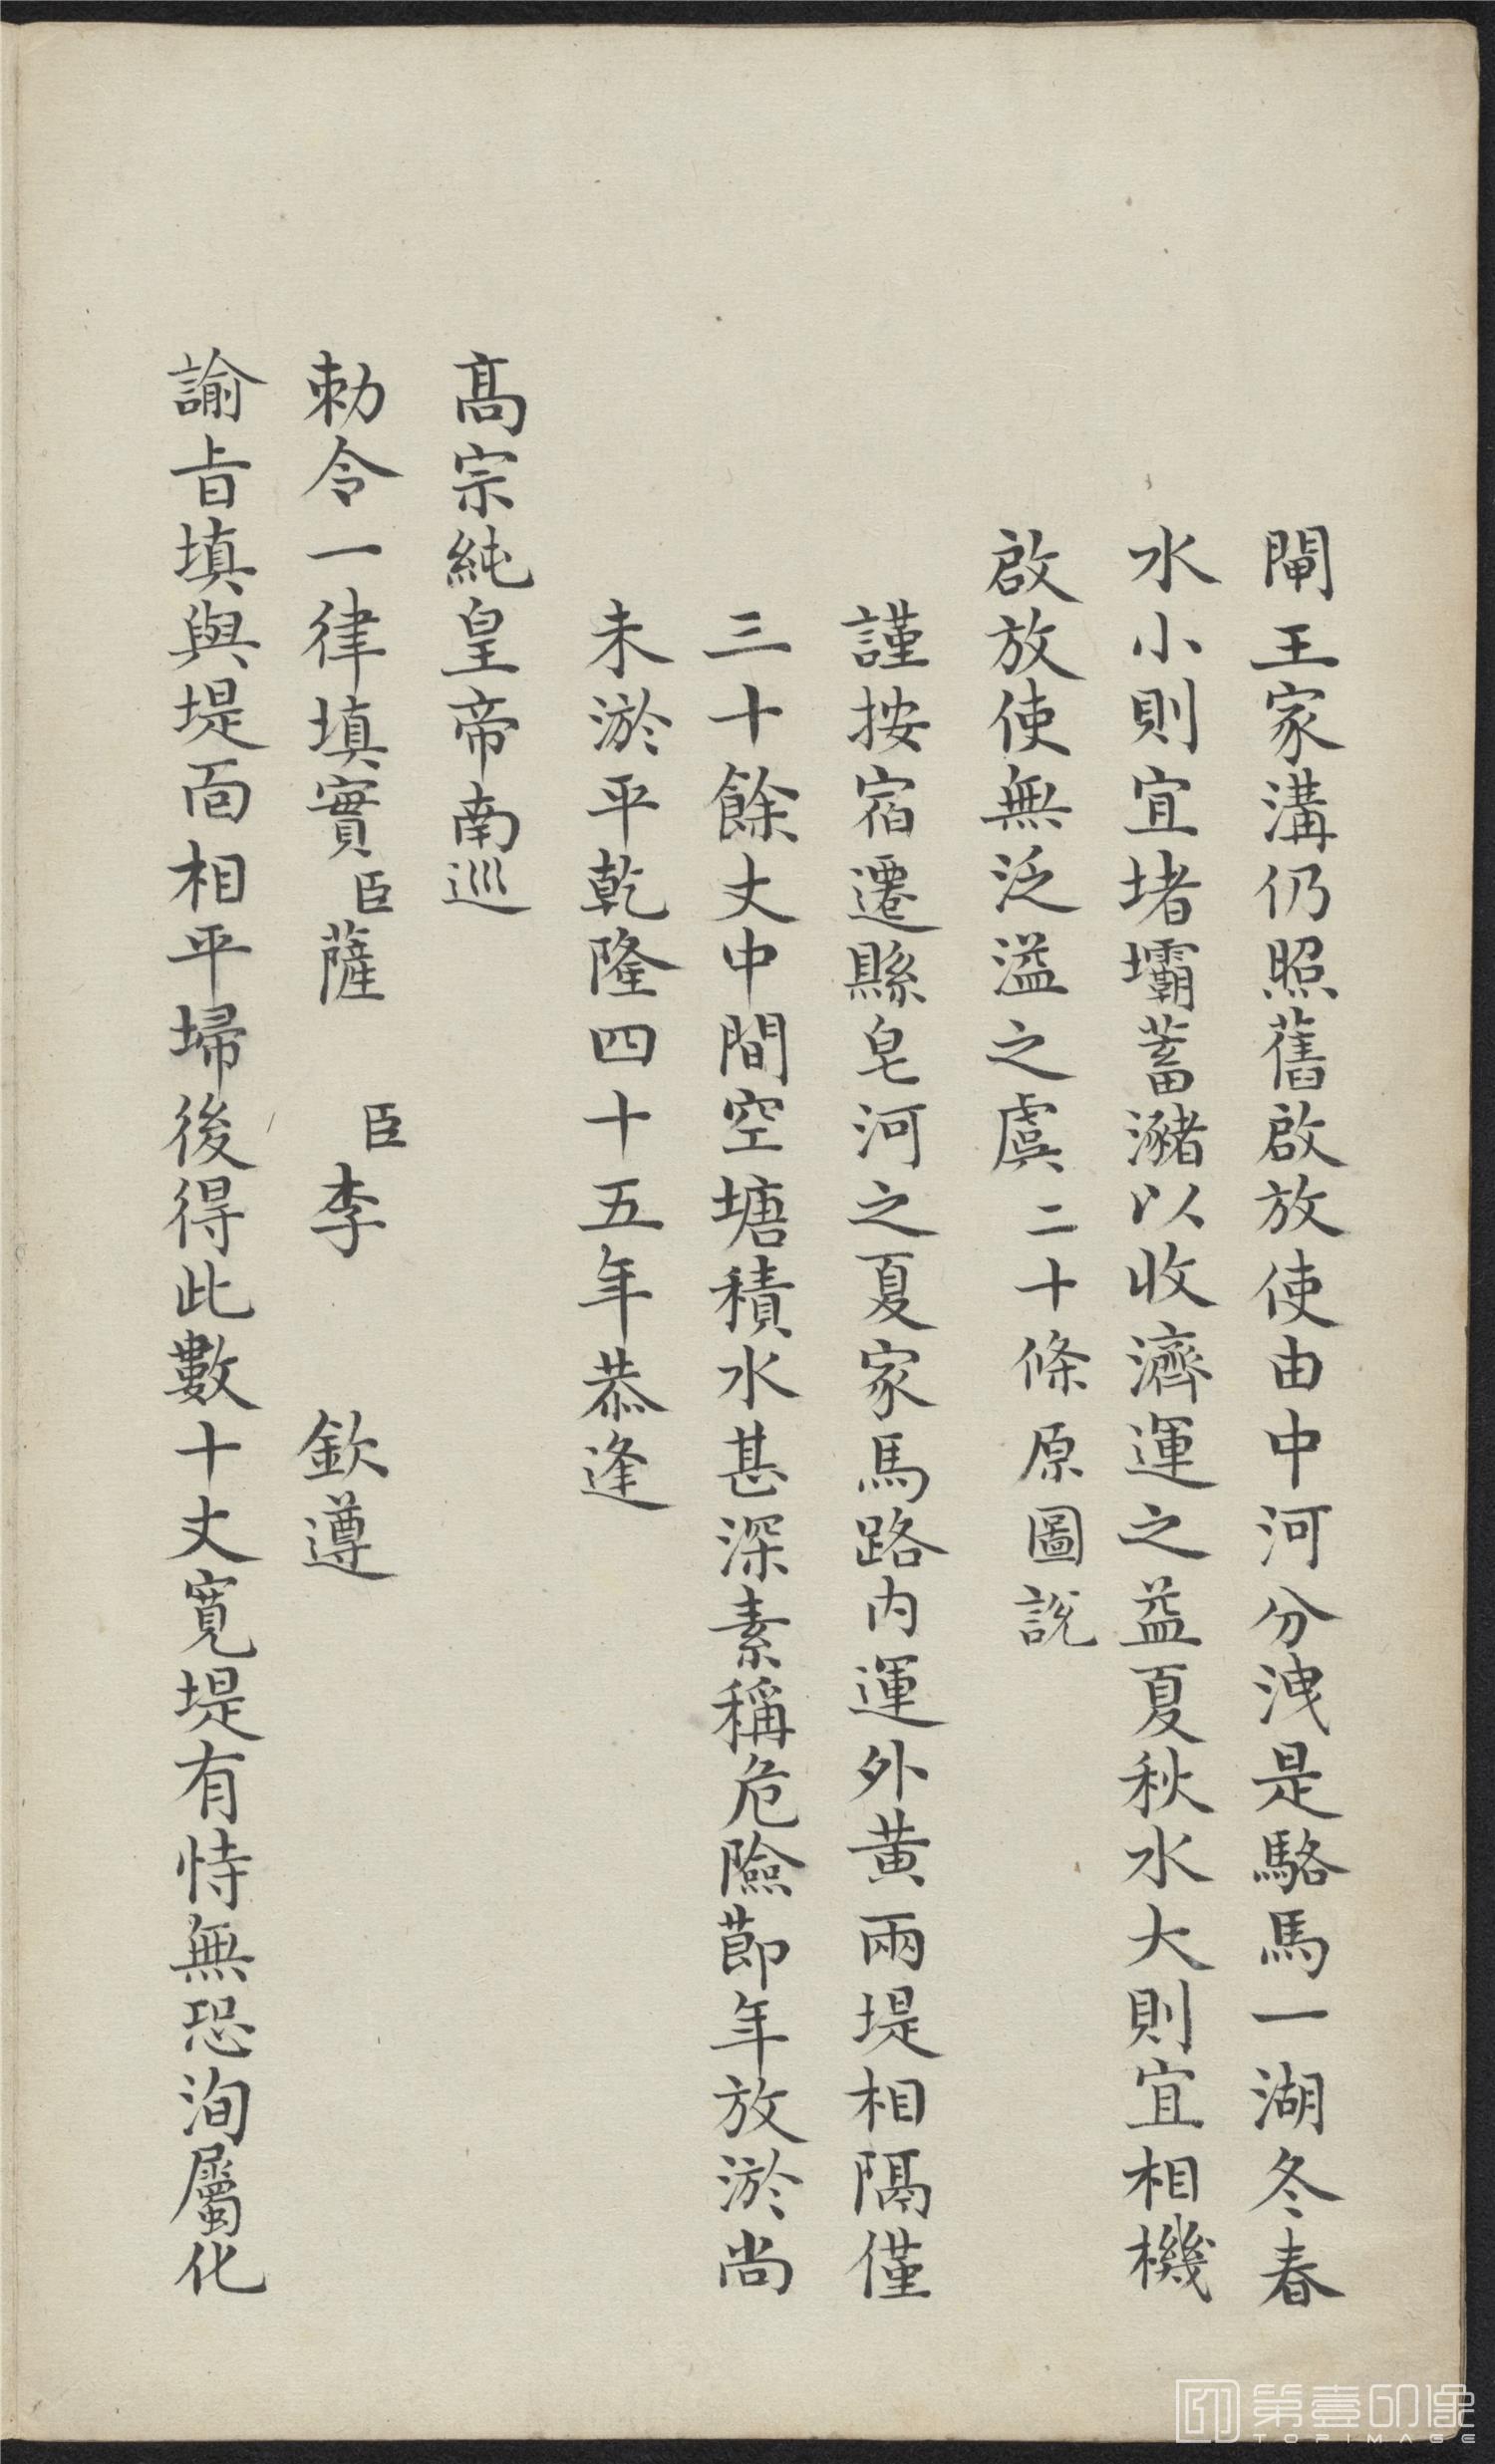 閘王家溝仍照舊啟放使由中河分洩是駱馬一湖冬春
水小則宜堵壩蓄瀦以收濟運之益夏秋水大則宜相機
啟放使無泛溢之虞二十條原圖說
謹按宿遷縣皂河之夏家馬路内運外黄兩堤相隔僅
三十餘丈中間空塘積水甚深素稱危險節年放淤尚
未淤平乾隆四十五年恭逢
髙宗純皇帝南巡
勅令一律填實臣薩 臣李 欽遵
諭旨填與堤面相平埽後得此數十丈寬堤有恃無恐洵屬化
第壹印像
TOPIMAGE